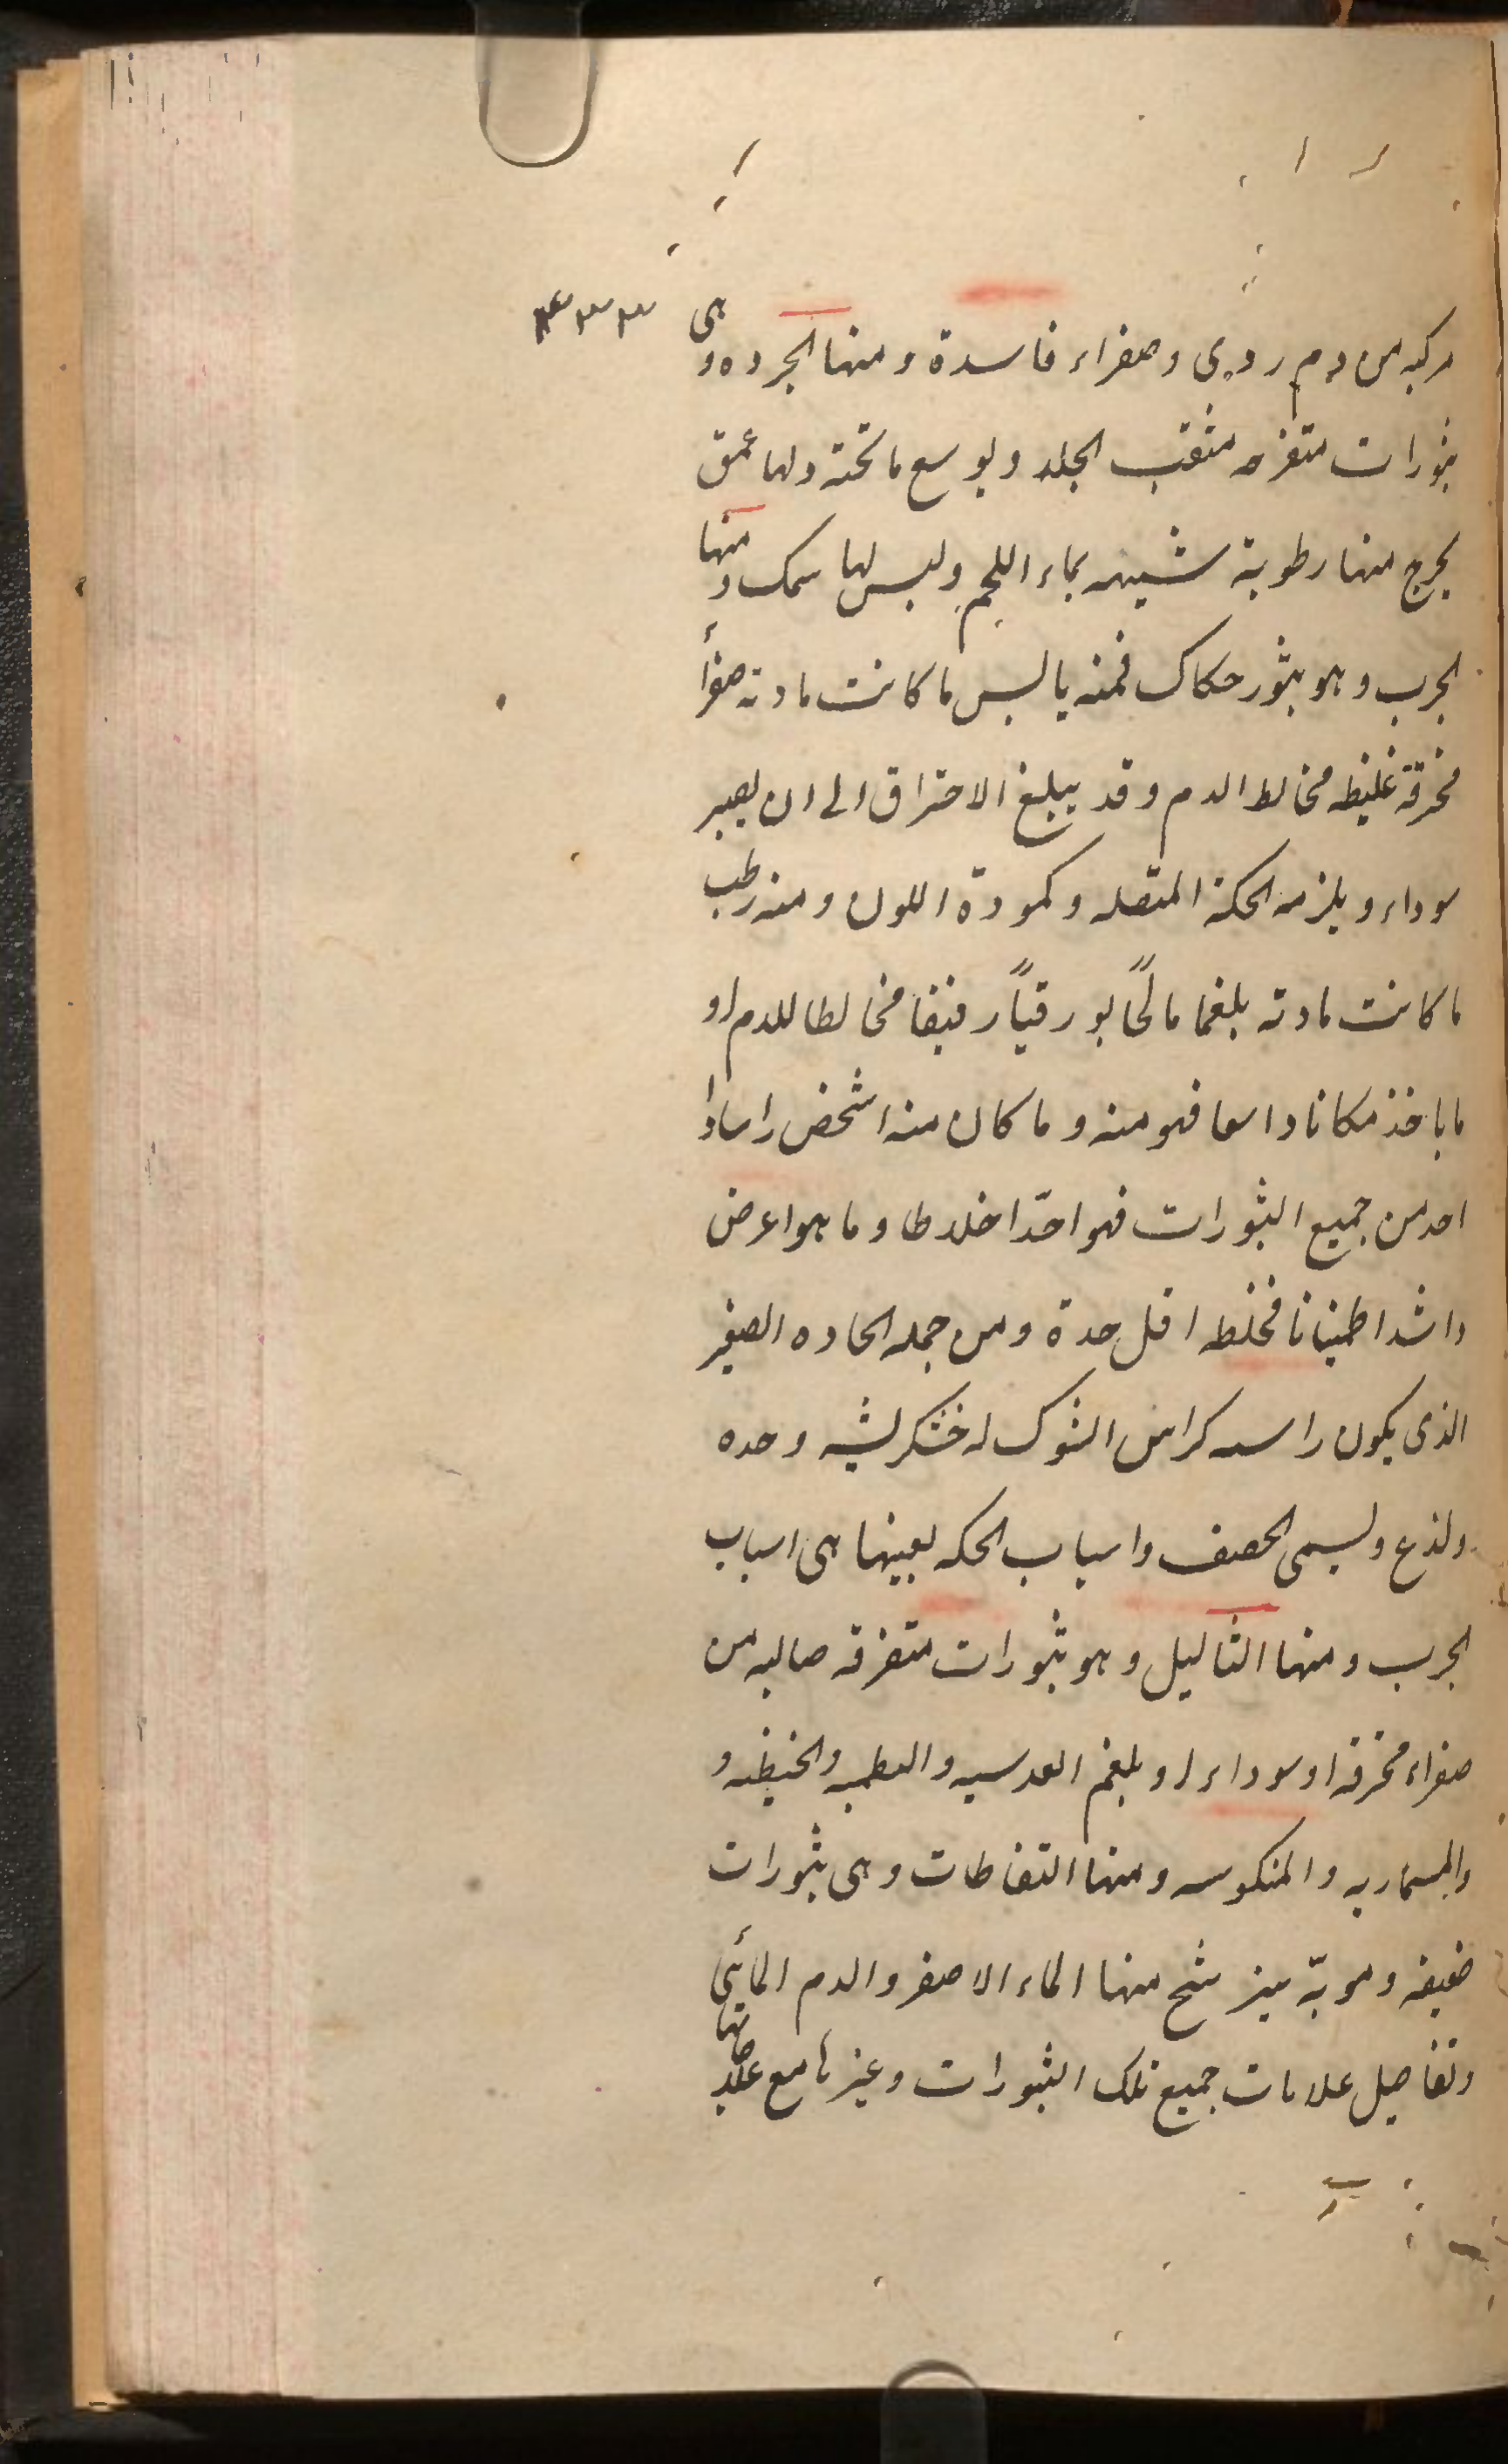 ٣٣٣
مركبه من دم ردى وصفراء فاسدة ومنها الجرده وهى
بثورات متقرحه مثقب الجلد ويوسع ماتحته ولها عمق
يخرج منها رطوبة شبيهه بماء اللحم وليس لها سمك ومنها
الجرب وهو بثور حكاك فمنه يابس ما كانت مادته صفرأ
محرقة غليظه مخالط الدم وقد يبلغ الاحتراق الى ان يصير
سوداء ويلزمه الحكة المتصله وكمودة اللون ومنه رطب
ما كانت مادته بلغما مالحًا بورقيًا رقيقا مخالطا للدم او
ماياخذ مكانا واسعا فهو منه وما كان منه اشخص راسا وا
احد من جميع البثورات فهو احدّ اخلاطا وما هو اعرض
واشد اطمينانا فخلطه اقل حدة ومن جمله الحاده الصغير
الذى يكون راسه كراس الشوك له خشكريشه وحده
ولذع ويسمى الحصف واسباب الحكه بعينها هى اسباب
الجرب ومنها الثاليل وهو بثورات متفرقه صالبه من
صفراء محرقه او سوداء او بلغم العدسيه و والحنطيه و
والمسماريه والمنكوسه ومنها النفاطات وهى بثورات
ضعيفه ومويّه يترشح منها الماء الاصفر والدم المائى
وتفاصيل علامات جميع تلك البثورات وغيرها مع علاجها